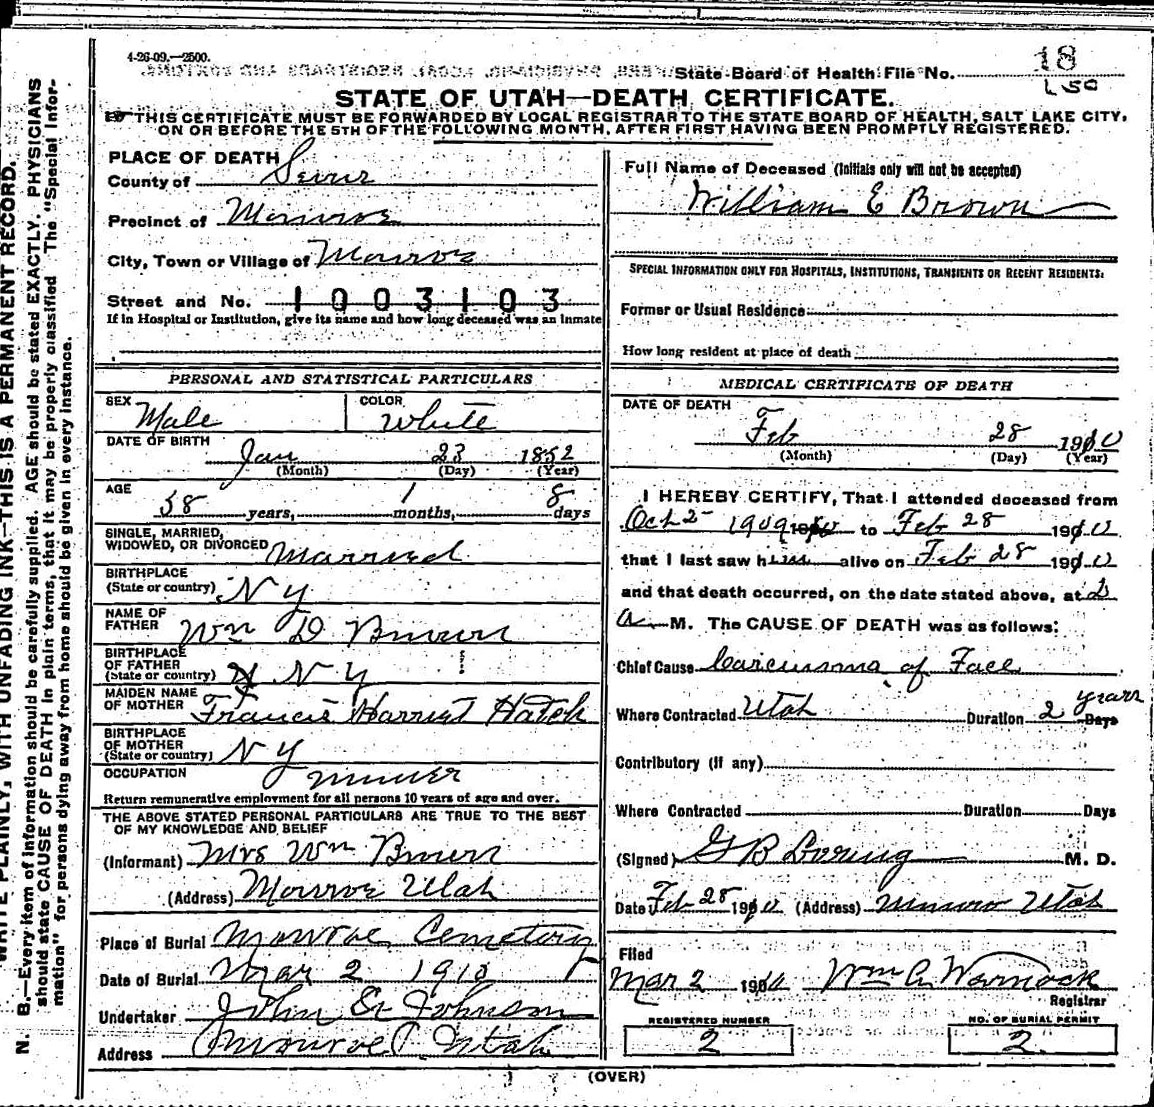 4-26-09.—2500.
State Board of Health File No. 18
150
STATE OF UTAH—DEATH CERTIFICATE.
THIS CERTIFICATE MUST BE FORWARDED BY LOCAL REGISTRAR TO THE STATE BOARD OF HEALTH, SALT LAKE CITY,
ON OR BEFORE THE 5TH OF THE FOLLOWING MONTH, AFTER FIRST HAVING BEEN PROMPTLY REGISTERED.
WRITE PLAINLY, WITH UNFADING INK—THIS IS A PERMANENT RECORD.
N. B.—Every item of information should be carefully supplied. AGE should be stated EXACTLY. PHYSICIANS
should state CAUSE OF DEATH in plain terms, that it may be properly classified The "Special Infor-
mation" for persons dying away from home should be given in every instance.
PLACE OF DEATH
County of Sevier
Precinct of Monroe
City, Town or Village of Monroe
Street and No. 1003103
If in Hospital or Institution, give its name and how long deceased was an inmate
PERSONAL AND STATISTICAL PARTICULARS
SEX Male COLOR White
DATE OF BIRTH
Jan 23 1852
(Month) (Day) (Year)
AGE
58 years, 1 months, 8 days
SINGLE, MARRIED,
WIDOWED, OR DIVORCED Married
BIRTHPLACE
(State or country) N Y
NAME OF
FATHER Wm D Brown
BIRTHPLACE
OF FATHER
(State or country) N Y
MAIDEN NAME
OF MOTHER Francis Harriet Hatch
BIRTHPLACE
OF MOTHER
(State or country) N Y
OCCUPATION Miner
Return remunerative employment for all persons 10 years of age and over.
THE ABOVE STATED PERSONAL PARTICULARS ARE TRUE TO THE BEST
OF MY KNOWLEDGE AND BELIEF
(Informant) Mrs Wm Brown
(Address) Monroe Utah
Place of Burial Monroe Cemetery
Date of Burial Mar 2 1910
Undertaker John E Johnson
Address Monroe Utah
Full Name of Deceased (Initials only will not be accepted)
William E Brown
SPECIAL INFORMATION ONLY FOR HOSPITALS, INSTITUTIONS, TRANSIENTS OR RECENT RESIDENTS:
Former or Usual Residence
How long resident at place of death
MEDICAL CERTIFICATE OF DEATH
DATE OF DEATH
Feb 28 1910
(Month) (Day) (Year)
I HEREBY CERTIFY, That I attended deceased from
Oct 2 1909 to Feb 28 1910
that I last saw him alive on Feb 28 1910
and that death occurred, on the date stated above, at 2
a M. The CAUSE OF DEATH was as follows:
Chief Cause Carcinoma of Face
Where Contracted Utah Duration 2 years Days
Contributory (if any)
Where Contracted Duration Days
(Signed) G B Loring M. D.
Date Feb 28 1910 (Address) Monroe Utah
Filed
Mar 2 1910 Wm A Warnock
Registrar
REGISTERED NUMBER
2
NO. OF BURIAL PERMIT
2
(OVER)